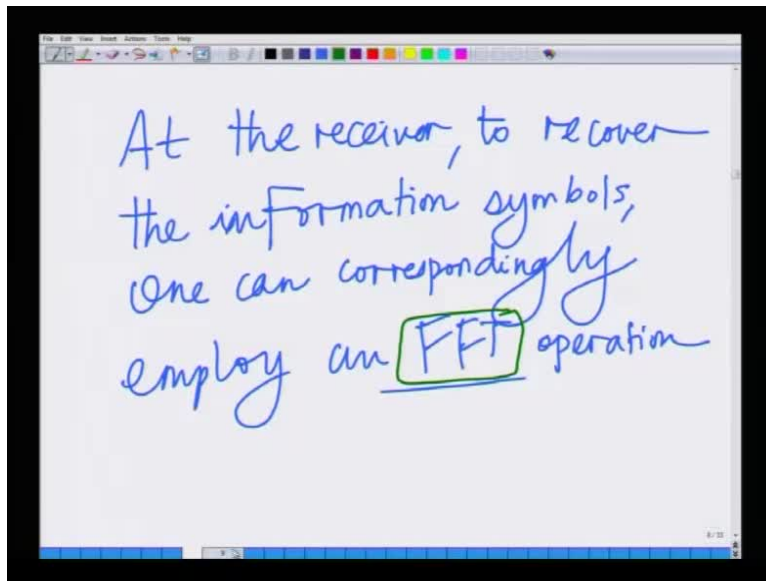 File Edit View Insert Actions Tools Help
At the receiver, to recover
the information symbols,
One can correspondingly
employ an FFT operation